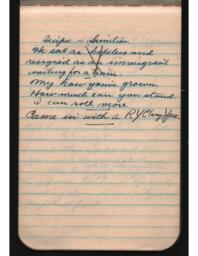 We sat as hopeless and
resigned as an immigrant
waiting for a train.
My how you've grown.
How much can you stand
I can roll more
Came in with a